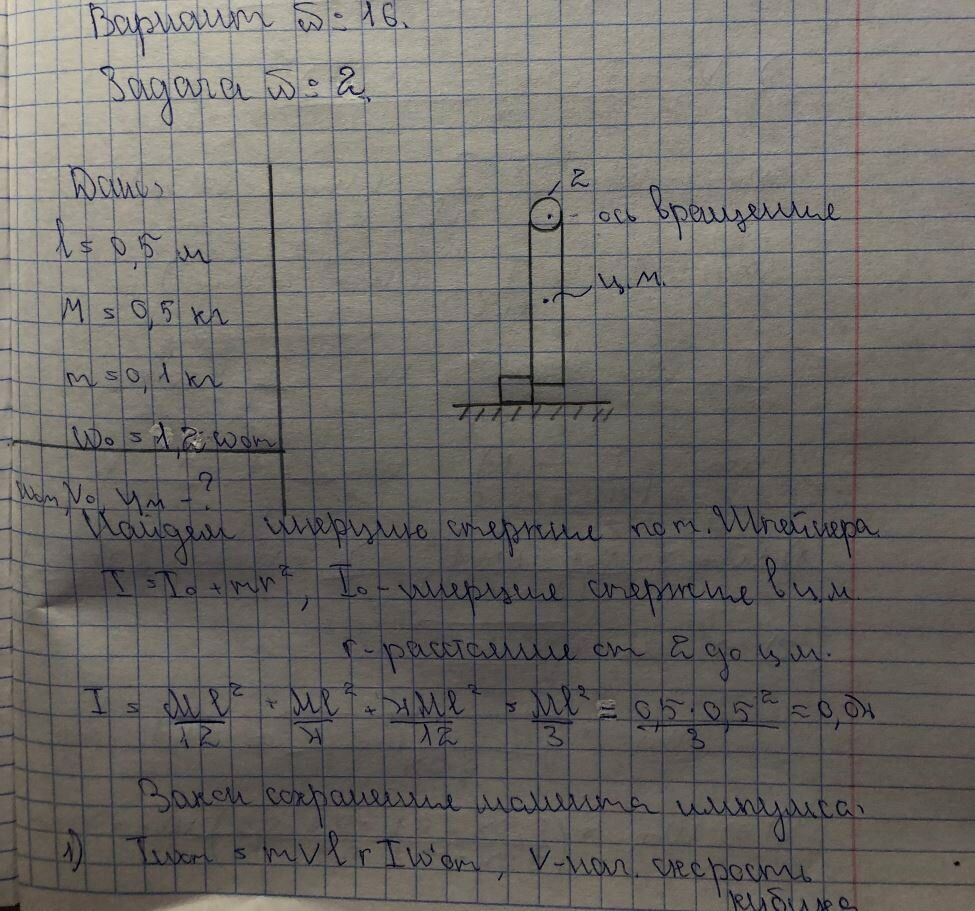 Вариант №: 16.
Задача №: 2.
Дано:
l = 0,5 м
M = 0,5 кг
m = 0,1 кг
ω₀ = 1,2 ωₒₘ
V₀, - ?
z
- ось вращения
ц.м.
Найдем инерцию стержня по т. Штейнера
I = I₀ + mr², I₀ - инерция стержня в ц.м.
r - расстояние от z до ц.м.
I = Ml²/12 + Ml²/4 + 4Ml²/12 = Ml²/3 = 0,5·0,5²/3 = 0,04
Закон сохранения момента импульса:
1) = mVl Iω', V - нач. скорость
кубика